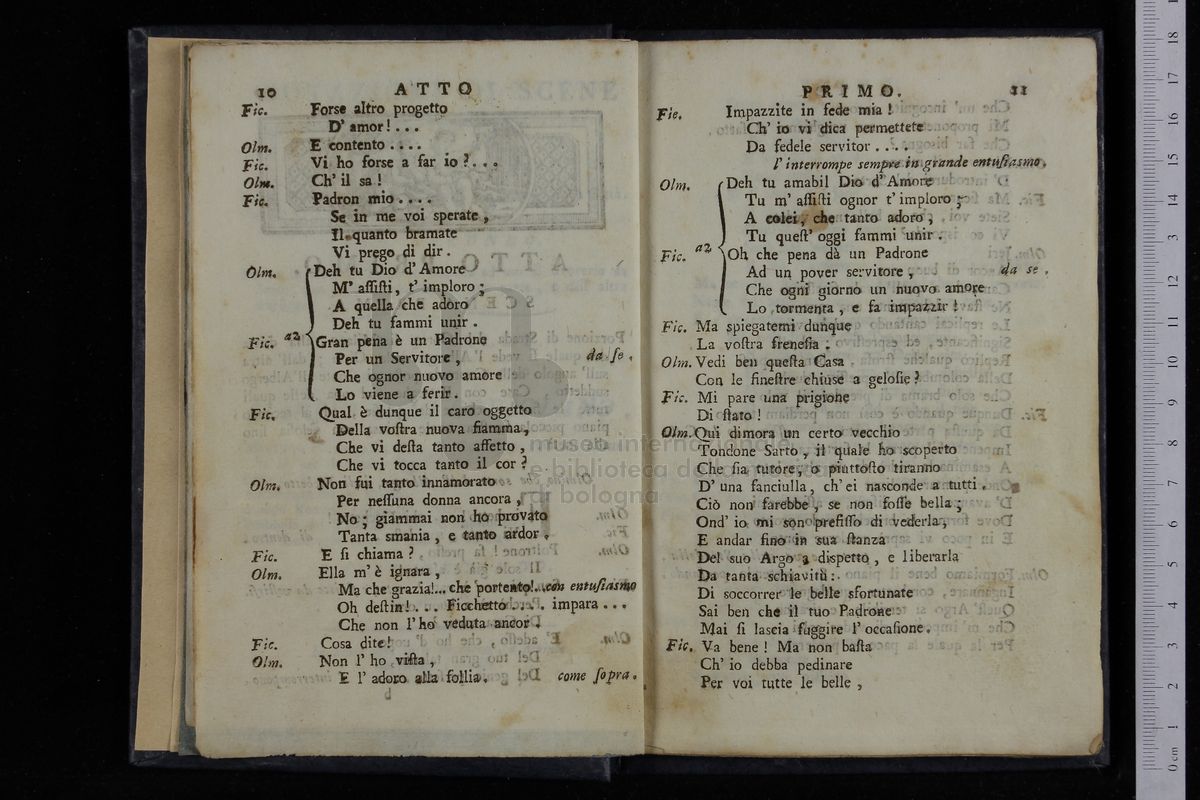 10 ATTO
Fic. Forse altro progetto
D' amor! . . .
Olm. E contento . . . .
Fic. Vi ho forse a far io ? . . .
Olm. Ch' il sa !
Fic. Padron mio . . . .
Se in me voi sperate ,
Il quanto bramate
Vi prego di dir .
Olm. Deh tu Dio d' Amore
M' assisti , t' imploro ;
A quella che adoro
Deh tu fammi unir .
Fic. a2 Gran pena è un Padrone
Per un Servitore , da se .
Che ognor nuovo amore
Lo viene a ferir .
Fic. Qual è dunque il caro oggetto
Della vostra nuova fiamma ,
Che vi desta tanto affetto ,
Che vi tocca tanto il cor ?
Olm. Non fui tanto innamorato
Per nessuna donna ancora ,
No ; giammai non ho provato
Tanta smania , e tanto ardor .
Fic. E si chiama ?
Olm. Ella m' è ignara ,
Ma che grazia!... che portento!...con entusiasmo
Oh destin! . . . Ficchetto . . . . impara . . .
Che non l' ho veduta ancor !
Fic. Cosa dite!
Olm. Non l' ho vista ,
E l' adoro alla follia . come sopra .
PRIMO. 11
Fic. Impazzite in fede mia !
Ch' io vi dica permettete
Da fedele servitor . . . .
l' interrompe sempre in grande entusiasmo .
Olm. Deh tu amabil Dio d' Amore
Tu m' assisti ognor t' imploro ;
A colei , che tanto adoro ,
Tu quest' oggi fammi unir .
Fic. a2 Oh che pena dà un Padrone
Ad un pover servitore , da se .
Che ogni giorno un nuovo amore
Lo tormenta , e fa impazzir !
Fic. Ma spiegatemi dunque
La vostra frenesia .
Olm. Vedi ben questa Casa
Con le finestre chiuse a gelosie ?
Fic. Mi pare una prigione
Di stato !
Olm. Qui dimora un certo vecchio
Tondone Sarto , il quale ho scoperto
Che sia tutore , o piuttosto tiranno
D' una fanciulla , ch' ei nasconde a tutti .
Ciò non farebbe , se non fosse bella ;
Ond' io mi son prefisso di vederla ,
E andar fino in sua stanza
Del suo Argo a dispetto , e liberarla
Da tanta schiavitù :
Di soccorrer le belle sfortunate
Sai ben che il tuo Padrone
Mai si lascia fuggire l' occasione .
Fic. Va bene ! Ma non basta
Ch' io debba pedinare
Per voi tutte le belle ,
museo internazionale
e biblioteca della musica
di bologna